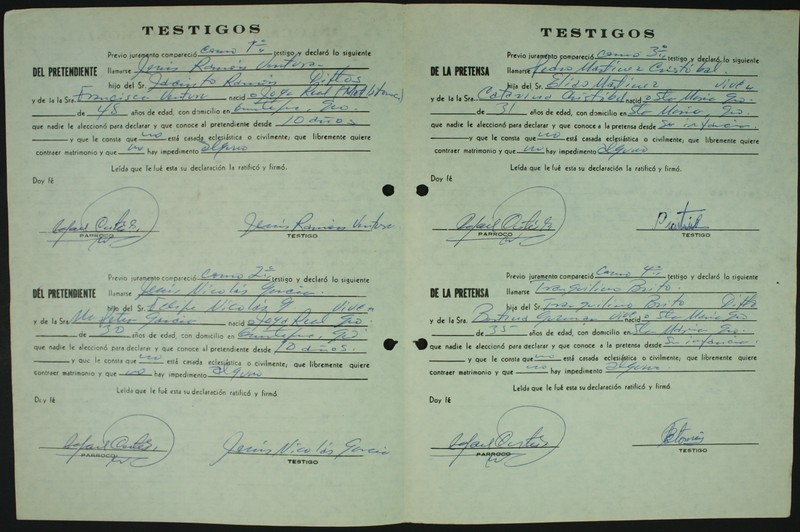 TESTIGOS
Previo juramento compareció como 1º testigo y declaró lo siguiente
DEL PRETENDIENTE llamarse Jesús Ramón Ventura
hijo del Sr. Jacinto Ramón Diftos
y de la Sra. Francisca Ventura nació Joya Real
de 48 años de edad, con domicilio en Gro.
que nadie le aleccionó para declarar y que conoce al pretendiente desde 10 años
y que le consta que no está casada eclesiástica o civilmente; que libremente quiere
contraer matrimonio y que no hay impedimento alguno
Leída que le fué esta su declaración la ratificó y firmó.
Doy fé
Rafael
PARROCO
Jesús Ramón Ventura
TESTIGO
Previo juramento compareció como 2º testigo y declaró lo siguiente
DEL PRETENDIENTE llamarse Jesús Nicolás García
hijo del Sr. Felipe Nicolás G viven
y de la Sra. García nació Joya Real Gro.
de 30 años de edad, con domicilio en Gro
que nadie le aleccionó para declarar y que conoce al pretendiente desde 10 años.
y que le consta que no está casada eclesiástica o civilmente; que libremente quiere
contraer matrimonio y que no hay impedimento alguno
Leída que le fué esta su declaración ratificó y firmó.
Doy fé
Rafael
PARROCO
Jesús Nicolás García
TESTIGO
TESTIGOS
Previo juramento compareció como 3º testigo y declaró lo siguiente
DE LA PRETENSA llamarse Pedro Martínez Cristóbal
hijo del Sr. Elías Martínez viven
y de la Sra. Catarina Cristóbal nació Sta María Gro.
de 31 años de edad, con domicilio en Sta María Gro.
que nadie le aleccionó para declarar y que conoce a la pretensa desde su infancia
y que le consta que no está casada eclesiástica o civilmente; que libremente quiere
contraer matrimonio y que no hay impedimento alguno
Leída que le fué esta su declaración la ratificó y firmó.
Doy fé
Rafael
PARROCO
TESTIGO
Previo juramento compareció como 4º testigo y declaró lo siguiente
DE LA PRETENSA llamarse Tranquilino Brito
hijo del Sr. Tranquilino Brito
y de la Sra. nació Sta María Gro
de 35 años de edad, con domicilio en Sta María Gro.
que nadie le aleccionó para declarar y que conoce a la pretensa desde su infancia
y que le consta que no está casada eclesiástica o civilmente; que libremente quiere
contraer matrimonio y que no hay impedimento alguno
Leída que le fué esta su declaración ratificó y firmó.
Doy fé
Rafael
PARROCO
TESTIGO